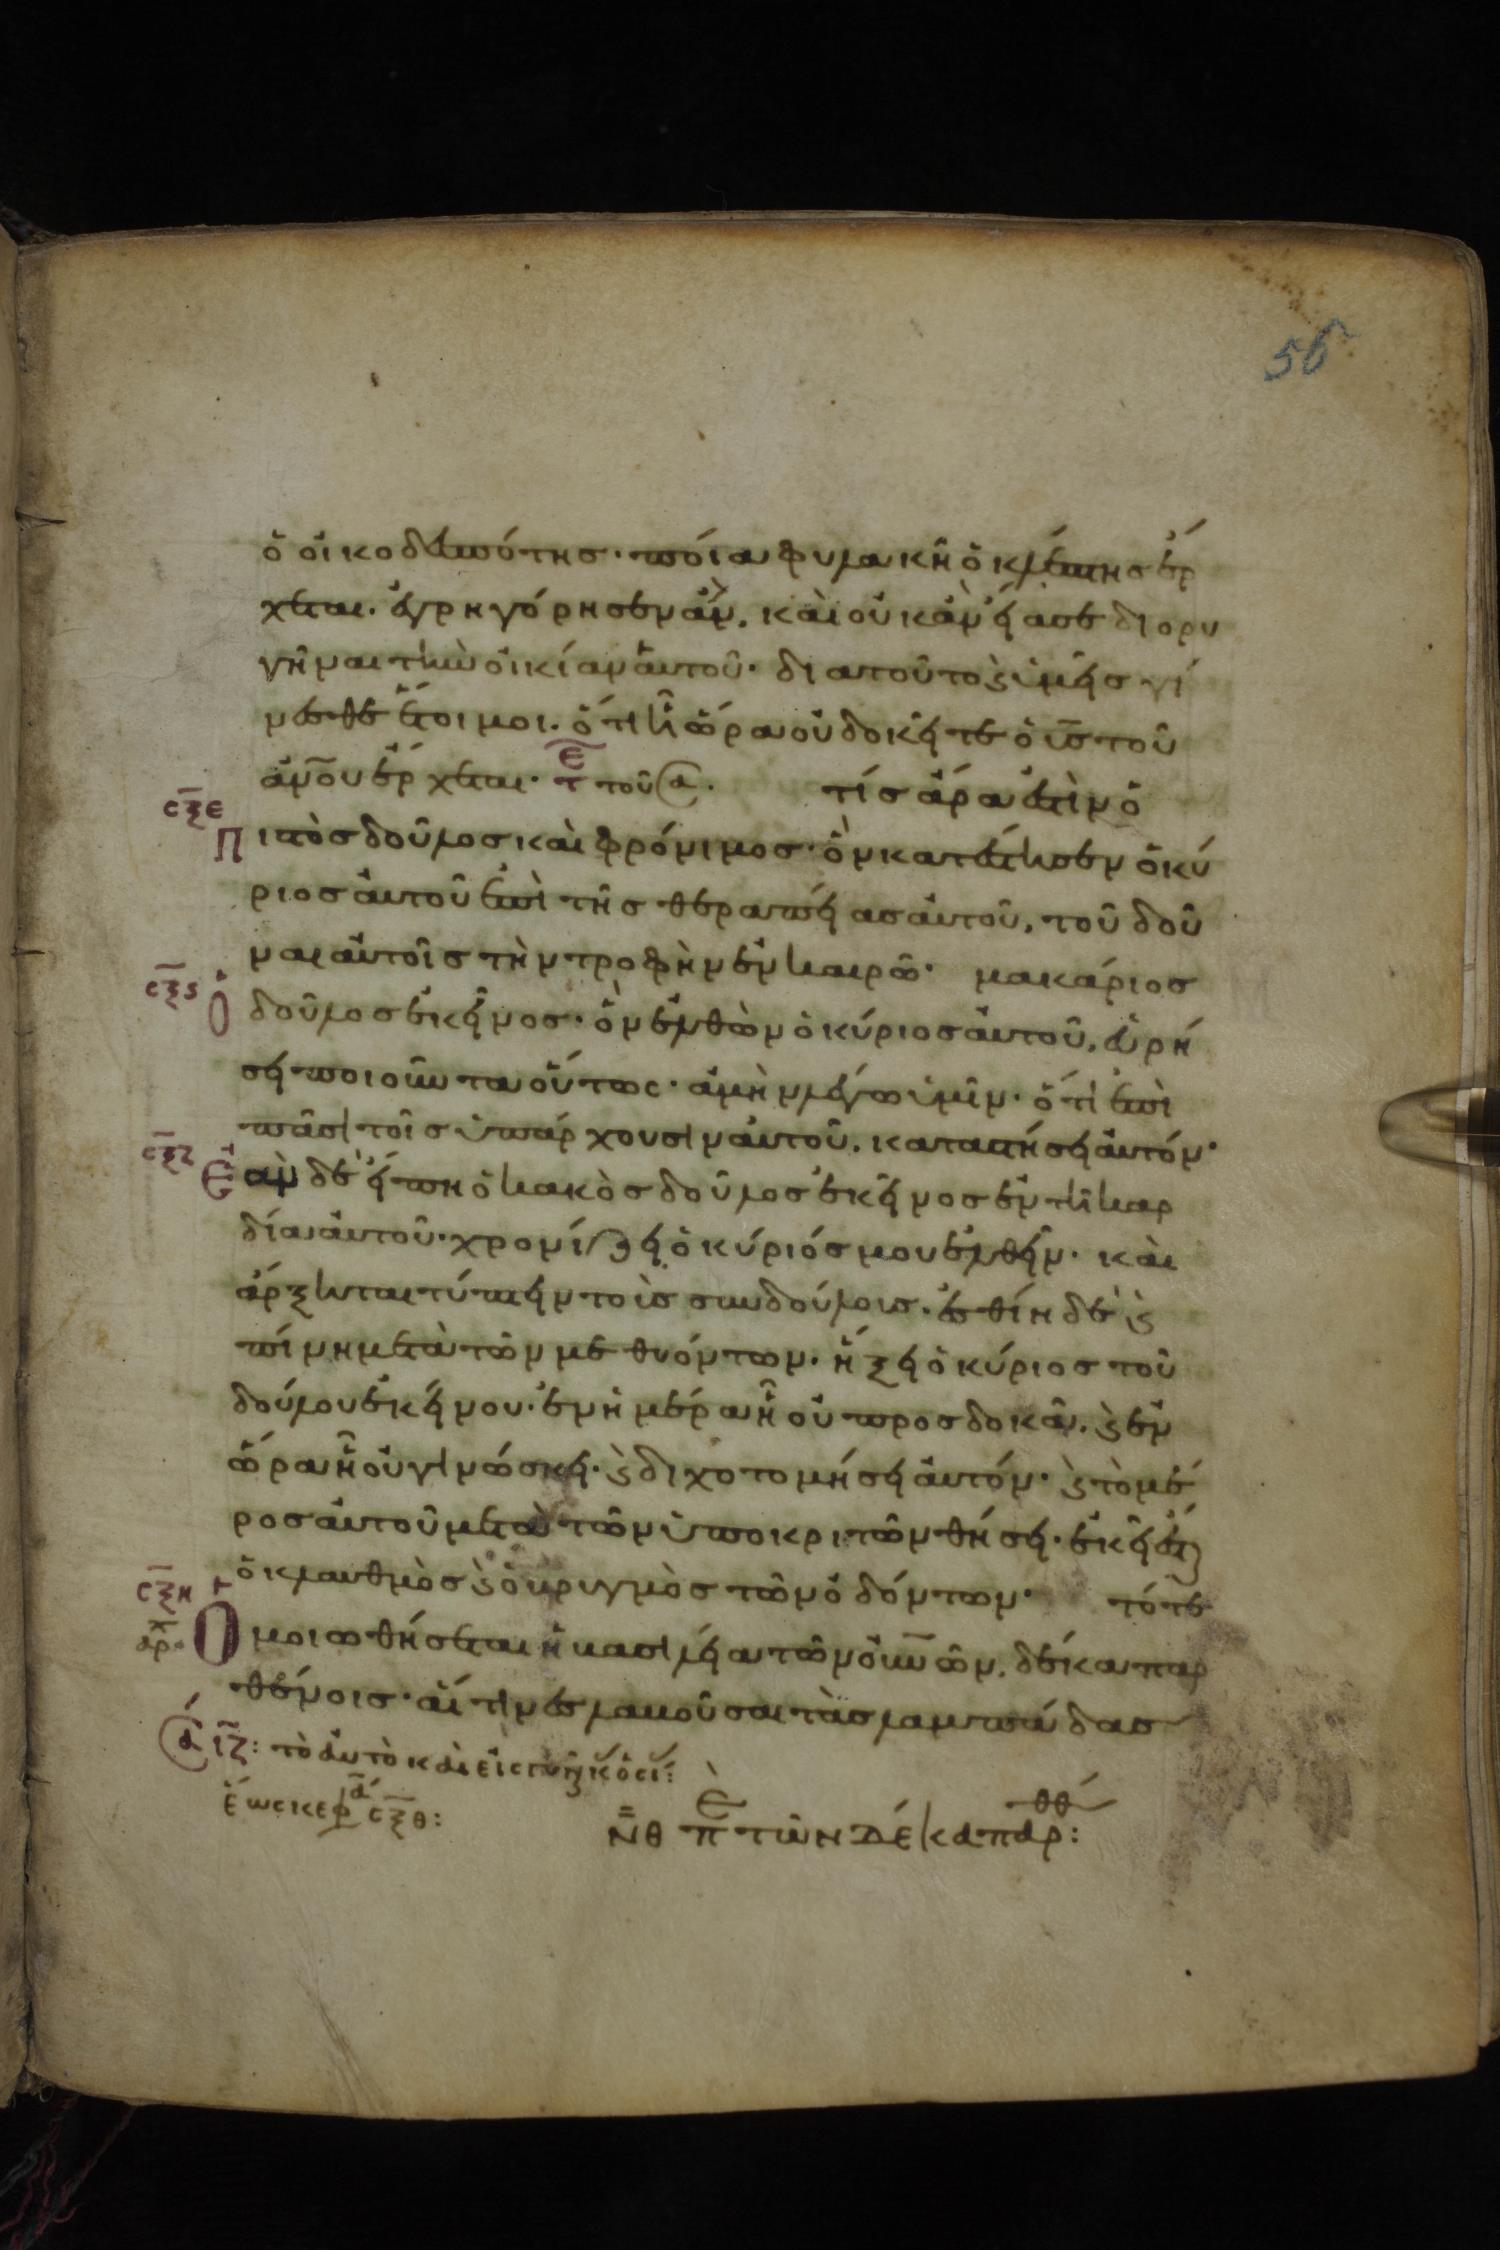 56
ὁ οἰκοδεσπότης· ποία φυλακῆ ὁ κλέπτης ἔρ
χεται. ἐγρηγόρησεν ἄν. καὶ οὐκ ἂν εἴασε διορυ
γῆναι τὴν οἰκίαν αὐτοῦ· διατοῦτο ϗ ὑμεῖς γί
νεσθε ἕτοιμοι. ὅτι ἧ ὥρα οὐ δοκεῖτε ὁ υς̅ τοῦ
ἀνο̅υ ἔρχεται· τε τοῦ α. τίς ἄρα ἐστὶν ὁ
σξε
Πιστὸς δοῦλος καὶ φρόνιμος· ὃν κατέστησεν ὁ κύ
ριος αὐτοῦ ἐπὶ τῆς θεραπείας αὐτοῦ, τοῦ δοῦ
ναι αὐτοῖς τὴν τροφὴν ἐν καιρῶ· μακάριος
σξς
ὁ δοῦλος ἐκεῖνος· ὃν ἐλθὼν ὁ κύριος αὐτοῦ, εὑρή
σει ποιοῦντα οὕτως· ἀμὴν λέγω ὑμῖν· ὅτι ἐπὶ
πᾶσι τοῖς ὑπάρχουσιν αὐτοῦ. καταστήσει αὐτόν·
σξζ
Ἐὰν δὲ εἴπη ὁ κακὸς δοῦλος ἐκεῖνος ἐν τῆ καρ
δία αὐτοῦ· χρονίζει ὁ κύριός μου ἐλθεῖν· καὶ
ἄρξηται τύπτειν τοὺς συνδούλους. ἐσθίη δὲ ϗ
πίνη μετὰ τῶν μεθυόντων· ἥξει ὁ κύριος τοῦ
δούλου ἐκείνου· ἐν ἡμέρα ἧ οὐ προσδοκᾶ. ϗ ἐν
ὥρα ἧ οὐ γινώσκει· ϗ διχοτομήσει αὐτόν· ϗ τὸ μέ
ρος αὐτοῦ μετὰ τῶν ὑποκριτῶν θήσει· ἐκεῖ ἔσται
ὁ κλαυθμὸς ϗ ὁ βρυγμὸς τῶν ὀδόντων· τότε
σξη
ἀρχ
Ὁμοιωθήσεται ἡ βασιλεία τῶν οὐν̅ῶν. δέκα παρ
θένοις· αἵτινες λαβοῦσαι τὰς λαμπάδας
ιζ: τὸ αὐτὸ καὶ εἰς
ἕως κεφ σξθ:
νθ π τῶν δέκα παρθ: